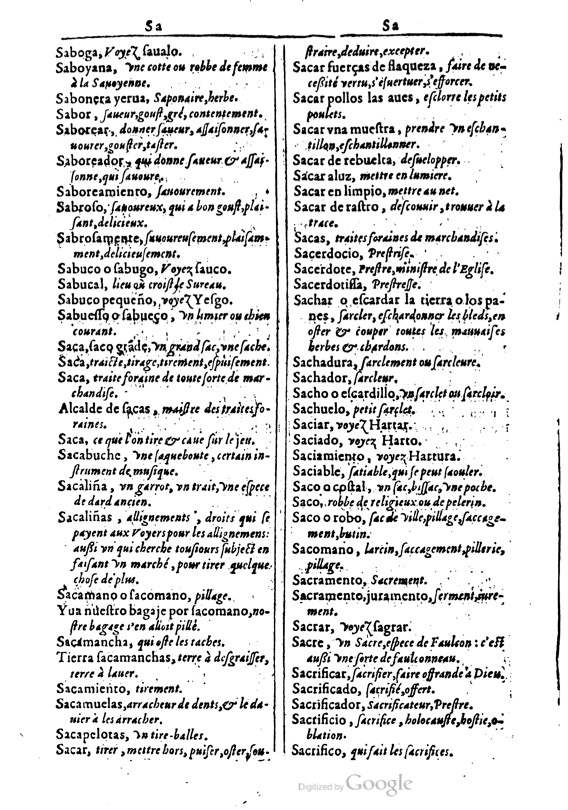 Sa
Saboga, Voyez saualo.
Saboyana, vne cotte ou robbe de femme
à la Sauoyenne.
Sabonera yerua, Saponaire, herbe.
Sabor, saueur, goust, gré, contentement.
Saborear, donner saueur, assaisonner, sa-
uourer, gouster, taster.
Saboreador, qui donne saueur & assai-
sonne, qui sauoure.
Saboreamiento, sauourement.
Sabroso, sauoureux, qui a bon goust, plai-
sant, delicieux.
Sabrosamente, sauoureusement, plaisam-
ment, delicieusement.
Sabuco o sabugo, Voyez sauco.
Sabucal, lieu où croist le Sureau.
Sabuco pequeño, voyez Yesgo.
Sabuesso o sabueço, vn limier ou chien
courant.
Saca, saco grãde, vn grand sac, vne sache.
Saca, traicte, tirage, tirement, espuisement.
Saca, traite foraine de toute sorte de mar-
chandise.
Alcalde de sacas, maistre des traites fo-
raines.
Saca, ce que l'on tire & caue sur le jeu.
Sacabuche, vne saqueboute, certain in-
strument de musique.
Sacaliña, vn garrot, vn trait, vne espece
de dard ancien.
Sacaliñas, allignements, droits qui se
payent aux Voyers pour les allignemens:
aussi vn qui cherche tousiours subject en
faisant vn marché, pour tirer quelque
chose de plus.
Sacamano o sacomano, pillage.
Y ua nuestro bagaje por sacomano, no-
stre bagage s'en alloit pillé.
Sacamancha, qui oste les taches.
Tierra sacamanchas, terre à desgraisser,
terre à lauer.
Sacamiento, tirement.
Sacamuelas, arracheur de dents, & le da-
uier à les arracher.
Sacapelotas, vn tire-balles.
Sacar, tirer, mettre hors, puiser, oster, sou-
Sa
straire, deduire, excepter.
Sacar fuerças de flaqueza, faire de ne-
cessité vertu, s'esuertuer, s'efforcer.
Sacar pollos las aues, esclorre les petits
poulets.
Sacar vna muestra, prendre vn eschan-
tillon, eschantillonner.
Sacar de rebuelta, desuelopper.
Sacar a luz, mettre en lumiere.
Sacar en limpio, mettre au net.
Sacar de rastro, descouuir, trouuer à la
trace.
Sacas, traites foraines de marchandises.
Sacerdocio, Prestrise.
Sacerdote, Prestre, ministre de l'Eglise.
Sacerdotissa, Prestresse.
Sachar o escardar la tierra o los pa-
nes, sarcler, eschardonner les bleds, en
oster & couper toutes les mauuaises
herbes & chardons.
Sachadura, sarclement ou sarcleure.
Sachador, sarcleur.
Sacho o escardillo, vn sarclet ou sarcloir.
Sachuelo, petit sarclet.
Saciar, voyez Hartar.
Saciado, voyez Harto.
Saciamiento, voyez Hartura.
Saciable, satiable, qui se peut saouler.
Saco o costal, vn sac, bissac, vne poche.
Saco, robbe de religieux ou de pelerin.
Saco o robo, sac de ville, pillage, saccage-
ment, butin.
Sacomano, larcin, saccagement, pillerie,
pillage.
Sacramento, Sacrement.
Sacramento, juramento, serment, jure-
ment.
Sacrar, voyez sagrar.
Sacre, vn Sacre, espece de Faulcon: c'est
aussi vne sorte de faulconneau.
Sacrificar, sacrifier, faire offrande à Dieu.
Sacrificado, sacrifié, offert.
Sacrificador, Sacrificateur, Prestre.
Sactificio, sacrifice, holocauste, hostie, o-
blation.
Sacrifico, qui fait les sacrifices.
Digitized by Google